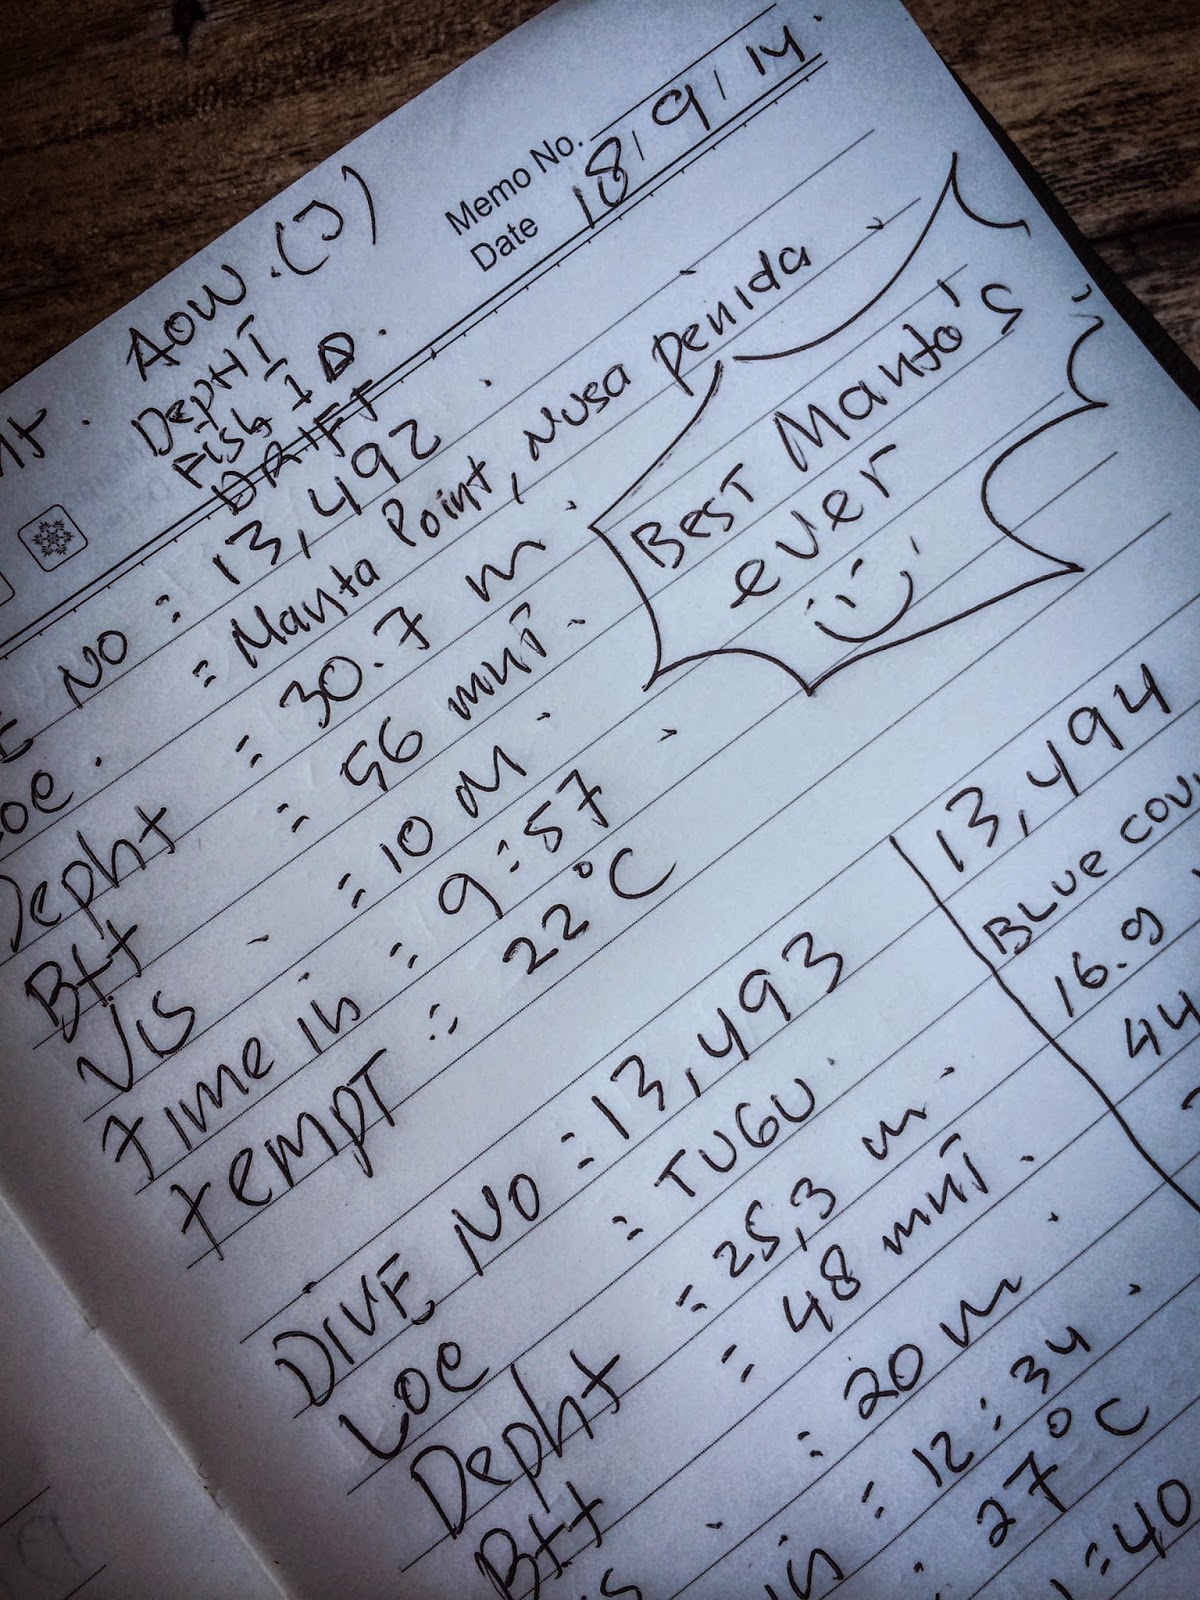 Memo No.
Date 18/9/14.
AOW.(J)
DepHT
Fish ID.
DRIFT
NO = 13,492
Loc. = Manta Point, Nusa Penida
Depht = 30.7 m.
Btt = 56 mnT.
Vis = 10 m.
time in = 9:57
tempT = 22°C
Best Manta's
ever
DIVE NO = 13,493
Loc = TUGU.
Depht = 25,3 m.
Btt = 48 mnT.
= 20 m
in = 12:34
27°C
= 40
13,494
BLUE
16.9
44